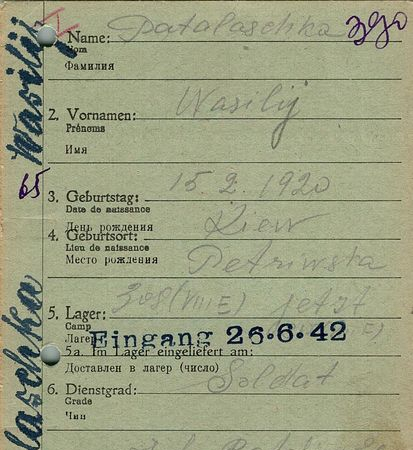 Name: Patalaschka
Nom
Фамилия
390
Wasilij
2. Vornamen: Wasilij
Prénoms
Имя
65
3. Geburtstag: 15.2.1920
Date de naissance
День рождения
4. Geburtsort: Kiew
Lieu de naissance
Место рождения
Petriwska
5. Lager: 308 (VIII E) jetzt
Camp
Лагерь
E)
Eingang 26.6.42
5a. Im Lager eingeliefert am:
Доставлен в лагер (число)
6. Dienstgrad: Soldat
Grade
Чин
laschka